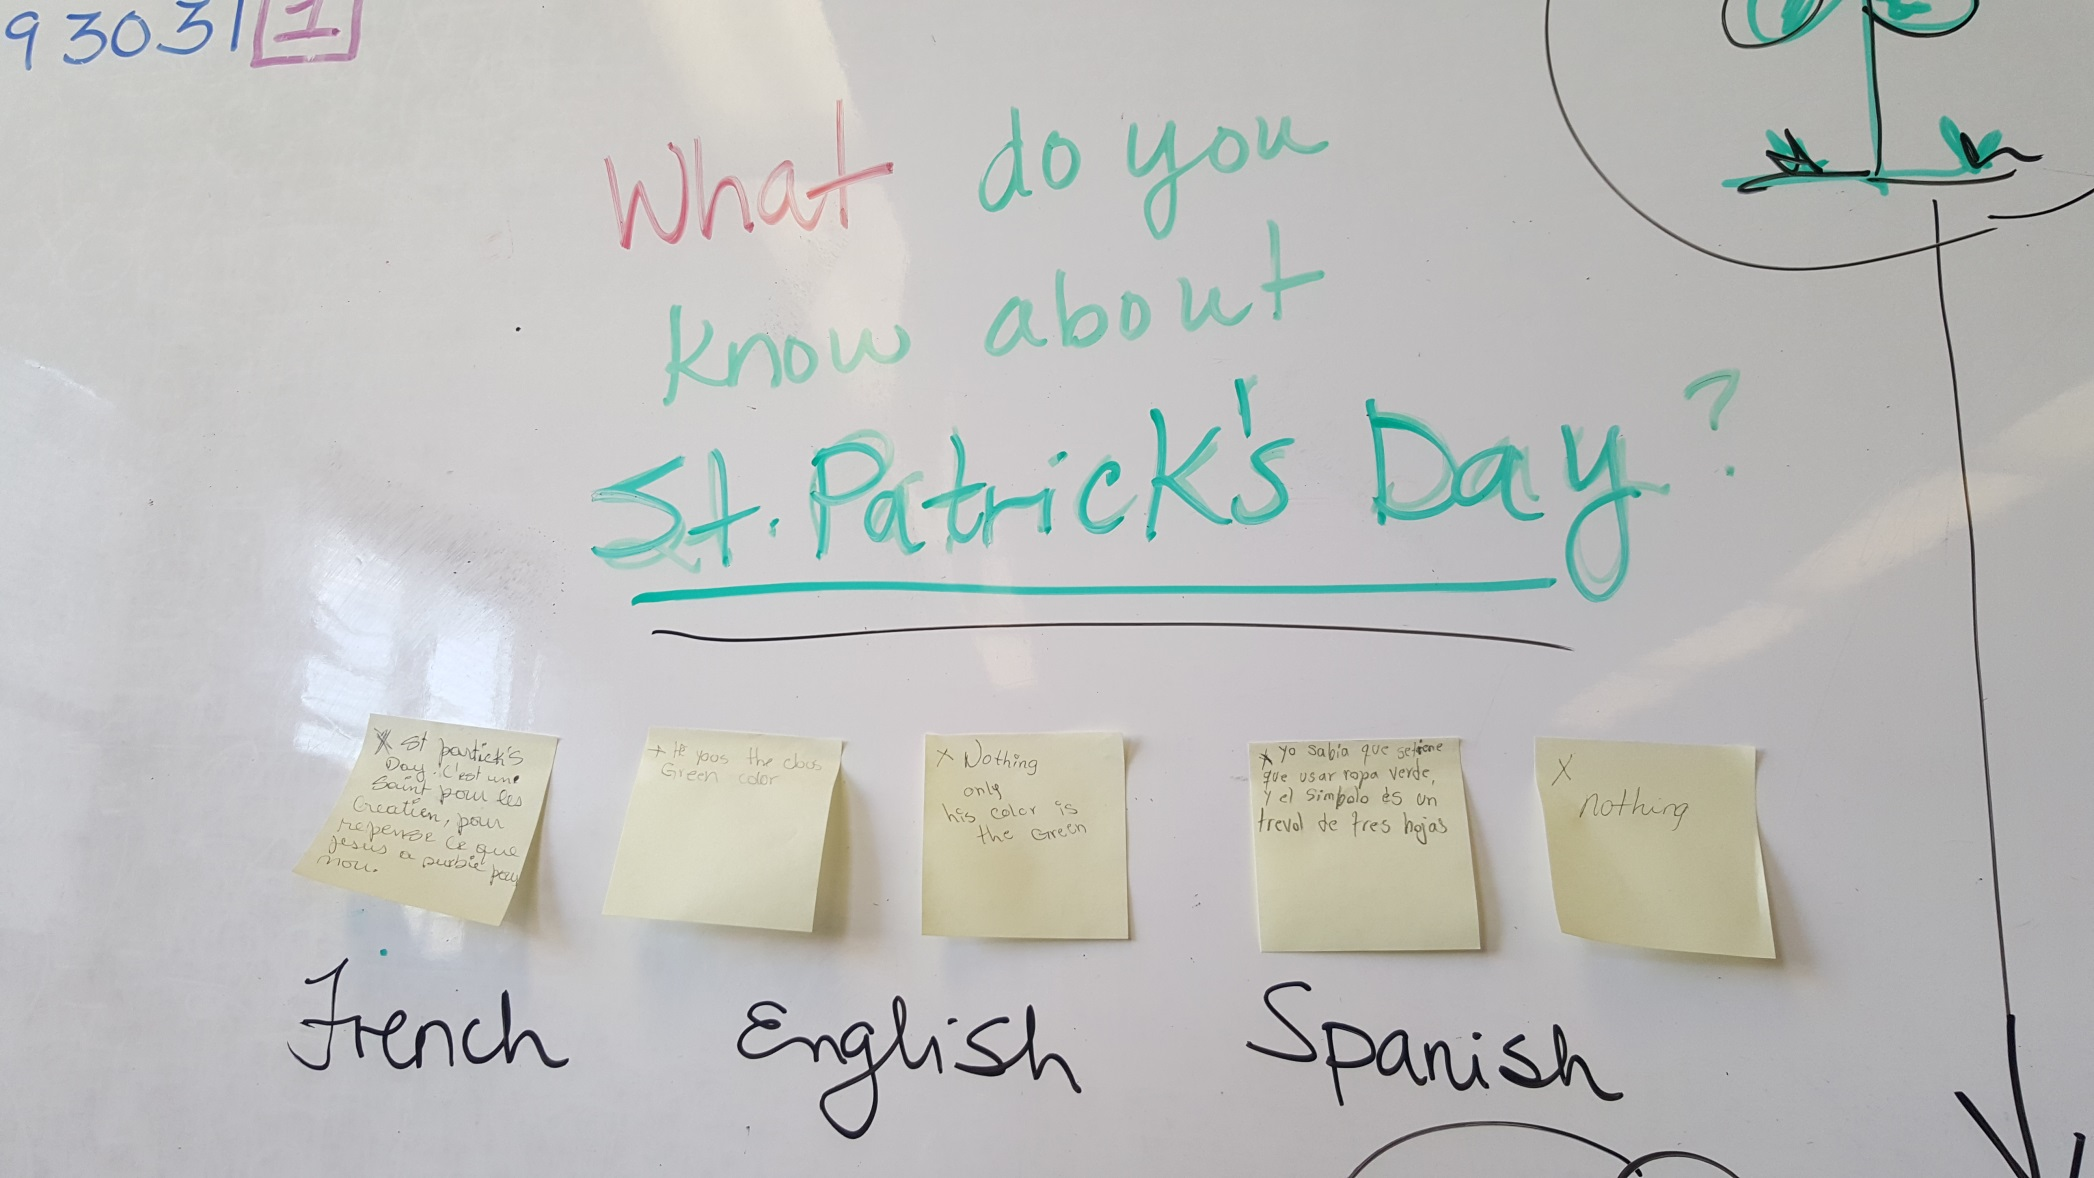 93031 1
What do you
know about
St. Patrick's Day?
X St partick's
Day. C'est une
Saint pour les
Creation, pour
repense ce que
jesus a pour
nou.
+ He the
Green color
X Nothing
only
his color is
the Green
X Yo sabia que setiene
que usar ropa verde,
y el simbolo es un
trevol de tres hojas
X
nothing
French English Spanish